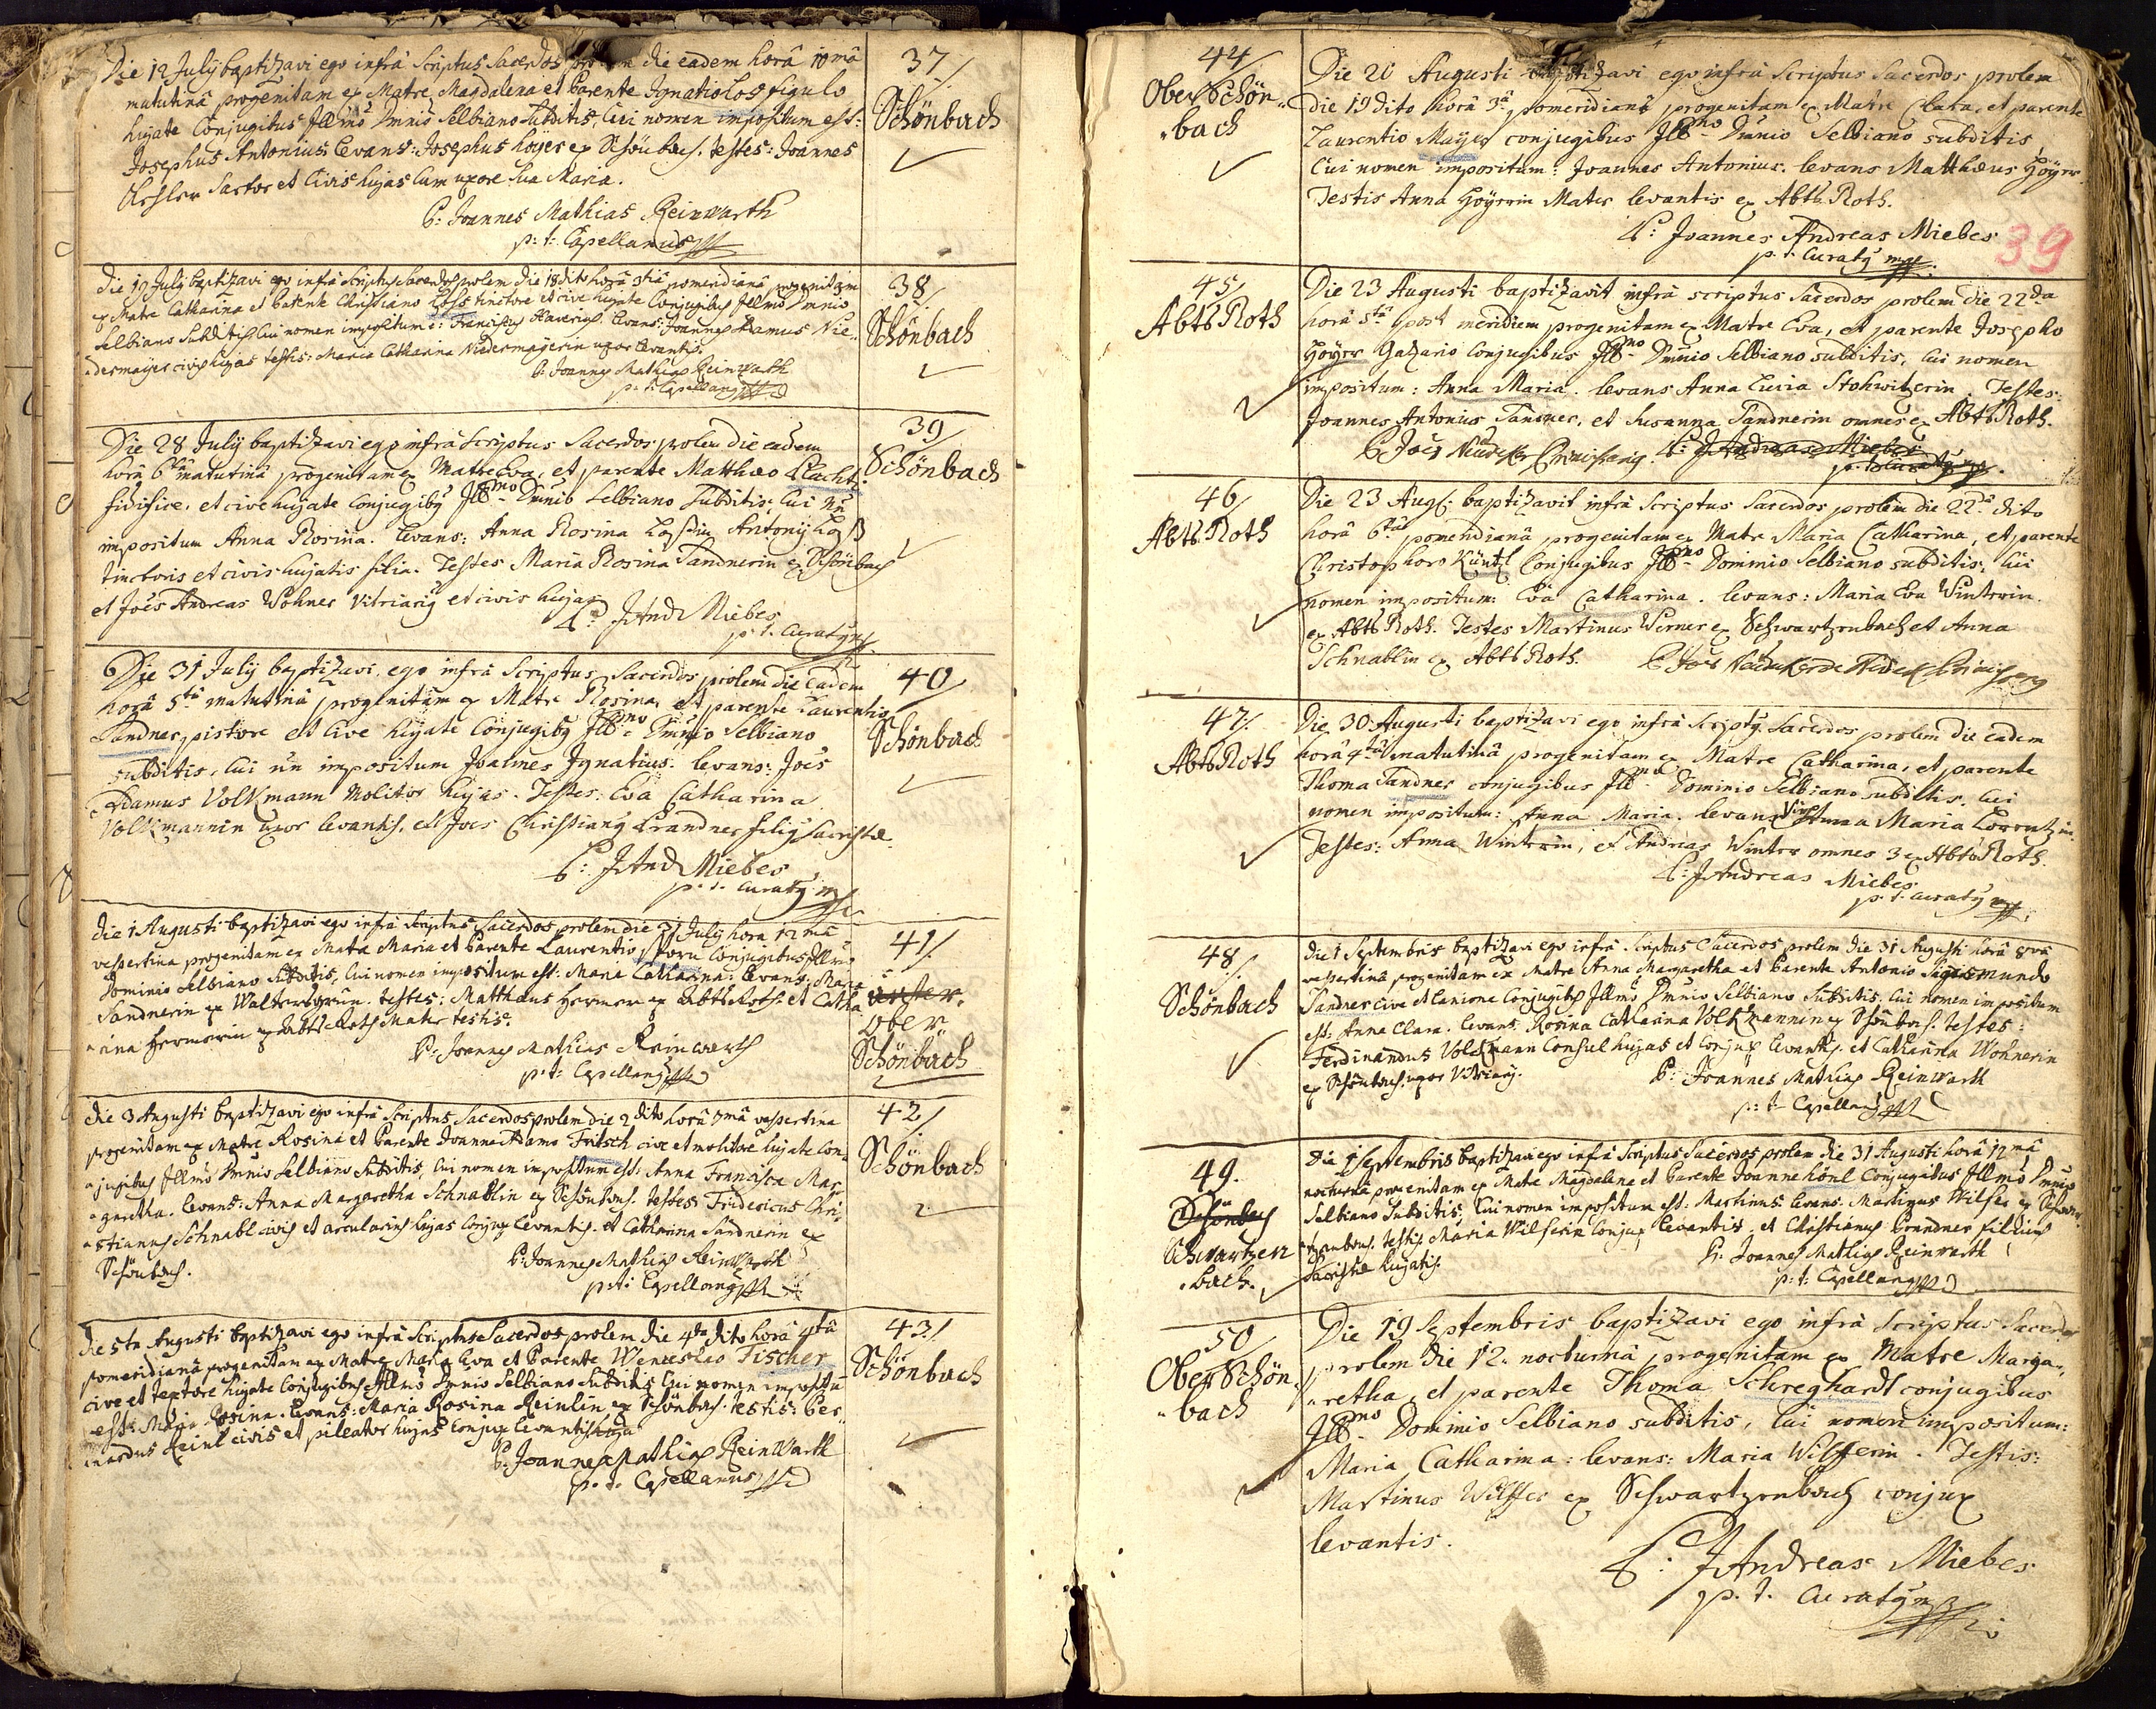 Die 12 Julÿ baptizavi ego infrà Scriptus Sacerdos die eadem horâ 10mâ
matutinâ progenitam ex Matre Magdalena et Parente Ignatio Los figulo
hujate Conjugibus Illmô Dmniô Selbiano Subditis, Cui nomen impositum est:
Josephus Antonius. Levans: Josephus Höÿer ex Schönbach. testes: Joannes
Sartor et Civis hujas Cum uxore Sua Maria.
P: Joannes Mathias Reinwarth
p: t: Capellanus
37/
Schönbach
die 19 Julÿ baptizavi ego infrà Scriptus Sacerdos prolem die 18 dito horâ 3tiâ pomeridianâ progenitam
ex Matre Catharina et Parente Christiano Loss tinctore et cive hujate Conjugibus Illmô Dmniô
Selbiano Subditis Cui nomen impositum e: Franciscus Xaverius. Levans: Joannes Adamus Nie-
dermaÿer civis hujas testis: Maria Catharina Niedermaÿerin uxor Levantis.
P: Joannes Mathias Reinwarth
p: t: Capellanus
38/
Schönbach
Die 28 Julÿ baptizavi ego infrà Scriptus Sacerdos prolem die eadem
horâ 6tâ matutinâ progenitam ex Matre Eva, et parente Matthæo Placht
fidifice, et cive hujate Conjugibq Illmo Dmnio Selbiano Subditis, Cui nn
impositum Anna Rosina. Levans: Anna Rosina Loßin Antonÿ Loß
tinctoris et civis hujatis filia. Testes Maria Rosina Sandnerin ex Schönbach
et Joës Andreas Wohner Vitriariq et civis hujas
P: JAnd Miebes
p. t. Curatq
39/
Schönbach
Die 31 Julÿ baptizavi ego infrà Scriptus Sacerdos prolem die eadem
horâ 5tâ matutinâ progenitam ex Matre Rosina, et parente Laurentio
Sandner, pistore et Cive hujate Conjugibq Illmo Dmnio Selbiano
subditis, Cui nn impositum Joannes Ignatius. Levans: Joës
Adamus Volkmann Molitor hujas. Testes: Eva Catharina
Volkmannin uxor levantis, et Joes Christianq Brandner filiq Sacristæ.
P: JAnd Miebes
p. t. Curatq
40/
Schönbach
die 1 Augusti baptizavi ego infrà Scriptus Sacerdos prolem die 31 Julÿ hora 12mâ
vespertina progenitam ex Matre Maria et Parente Laurentio Conjugibus Illmo
Dominio Selbiano Subditis, Cui nomen impositum est: Maria Catharina: Levans: Maria
Sandnerin ex Waltersgrün. testes: Matthæus Hermer ex AbtsRoth et Catha-
rina Hermerin ex AbtsRoth Mater testis.
P: Joannes Mathias Reinwarth
p: t: Capellanus
41/
Ober
Schönbach
die 3 Augusti baptizavi ego infrà Scriptus Sacerdos prolem die 2 dito horâ 7mâ vespertina
progenitam ex Matre Rosina et Parente Joanne Adamo Fritsch cive et molitore hujate Con-
jugibus Illmo Dmnio Selbiano Subditis, Cui nomen impositum est: Anna Francisca Mar-
garetha. Levans: Anna Margaretha Schnablin ex Schönbach. testes Fridericus Chri-
stianus Schnabl civis et arcularius hujas Conjux Levantis. et Catharina Sandnerin ex
Schönbach.
P: Joannes Mathias Reinwarth
p: t: Capellanus
42/
Schönbach
die 5ta Augusti baptizavi ego infrà Scriptus Sacerdos prolem die 4ta dito horâ 4tâ
pomeridianâ progenitam ex Matre Maria Eva et Parente Wenceslao Fischer
cive et textore hujate Conjugibus Illmo Dmnio Selbiano Subditis Cui nomen impositū
est: Maria Rosina. Levans: Maria Rosina Reinlin ex Schönbach. testis: Ber-
nardus Reinl civis et pileator hujas Conjux Levantis
P: Joannes Mathias Reinwarth
p. t. Capellanus
43/
Schönbach
44/
Ober Schön-
bach
Die 20 Augusti baptizavi ego infrà Scriptus Sacerdos prolem
die 19 dito horâ 3â pomeridianâ progenitam ex Matre Clara, et parente
Laurentio Maÿer conjugibus Illmo Dmnio Selbiano subditis
Cui nomen impositum: Joannes Antonius. levans Matthæus Höÿer
Testis Anna Höÿerin Mater levantis ex Abts Roth.
P: Joannes Andreas Miebes
p. t. Curatq
39
45/
Abts Roth
Die 23 Augusti baptizavit infrà scriptus Sacerdos prolem die 22da
horâ 5tâ post meridiem progenitam ex Matre Eva, et parente Josepho
Höÿer Gazario Conjugibus Illmo Dmnio Selbiano subditis, Cui nomen
impositum: Anna Maria. levans Anna Lucia Stohwitzerin. Testes:
Joannes Antonius Sandner, et Susanna Sandnerin omnes ex Abts Roth.
P: JAndreas Miebes
p. t. Curatq
46/
Abts Roth
Die 23 Aug: baptizavit infrà Scriptus Sacerdos prolem die 22dâ dito
horâ 6tâ pomeridianâ progenitam ex Matre Maria Catharina, et parente
Christophoro Küntzl Conjugibus Illmo Dominio Selbiano subditis, Cui
nomen impositum: Eva Catharina. levans: Maria Eva Winterin
ex Abts Roth. Testes Martinus Werner ex Schwartzenbach et Anna
Schnablin ex Abts Roth.
47/
Abts Roth
Die 30 Augusti baptizavi ego infrà Scriptq Sacerdos prolem die eadem
horâ 4tâ matutinâ progenitam ex Matre Catharina, et parente
Thoma Sandner conjugibus Illmo Dominio Selbiano subditis, Cui
nomen impositum: Anna Maria. levans Anna Maria Lorentzin.
Testes: Anna Winterin, et Andreas Winter omnes 3 ex Abts Roth.
P: JAndreas Miebes
p. t. curatq
48/
Schönbach
die 1 Septembris baptizavi ego infrà Scriptus Sacerdos prolem die 31 Augusti horâ 8vâ
vespertinâ progenitam ex Matre Anna Margaretha et Parente Antonio Sigismundo
Sandner cive et Lanione Conjugibus Illmô Dmnio Selbiano Subditis. Cui nomen impositum
est: Anna Clara. Levans. Rosina Catharina Volkmannin ex Schönbach. testes:
Ferdinandus Volckmann Consul hujas et Conjux Levantis. et Catharina Wohnerin
ex Schönbach. uxor Vitriarÿ.
P: Joannes Mathias Reinwarth
p: t: Capellanus
49.
Schönbach
Schwartzen
bach.
Die 1 Septembris baptizavi ego infrà Scriptus Sacerdos prolem die 31 Augusti horâ 12mâ
nocturnâ progenitam ex Matre Magdalena et Parente Joanne Hönl Conjugibus Illmô Dmniô
Selbiano Subditis, Cui nomen impositum est: Martinus. Levans: Martinus Wilfer ex Schwar-
tzenbach. testis Maria Wilferin Conjux Levantis. et Christianus Brandner filius
Sacristæ hujatis.
P: Joannes Mathias Reinwarth
p: t: Capellanus
50/
Ober Schön-
bach
Die 19 Septembris baptizavi ego infrà Scriptus Sacerdos
prolem die 12. nocturnâ progenitam ex Matre Marga-
retha, et parente Thoma Schreghardt conjugibus
Illmo Dominio Selbiano subditis, Cui nomen impositum:
Maria Catharina: levans: Maria Wilfferin. Testis:
Martinus Wilffer ex Schwartzenbach conjux
levantis.
P: JAndreas Miebes
p. t. Curatq